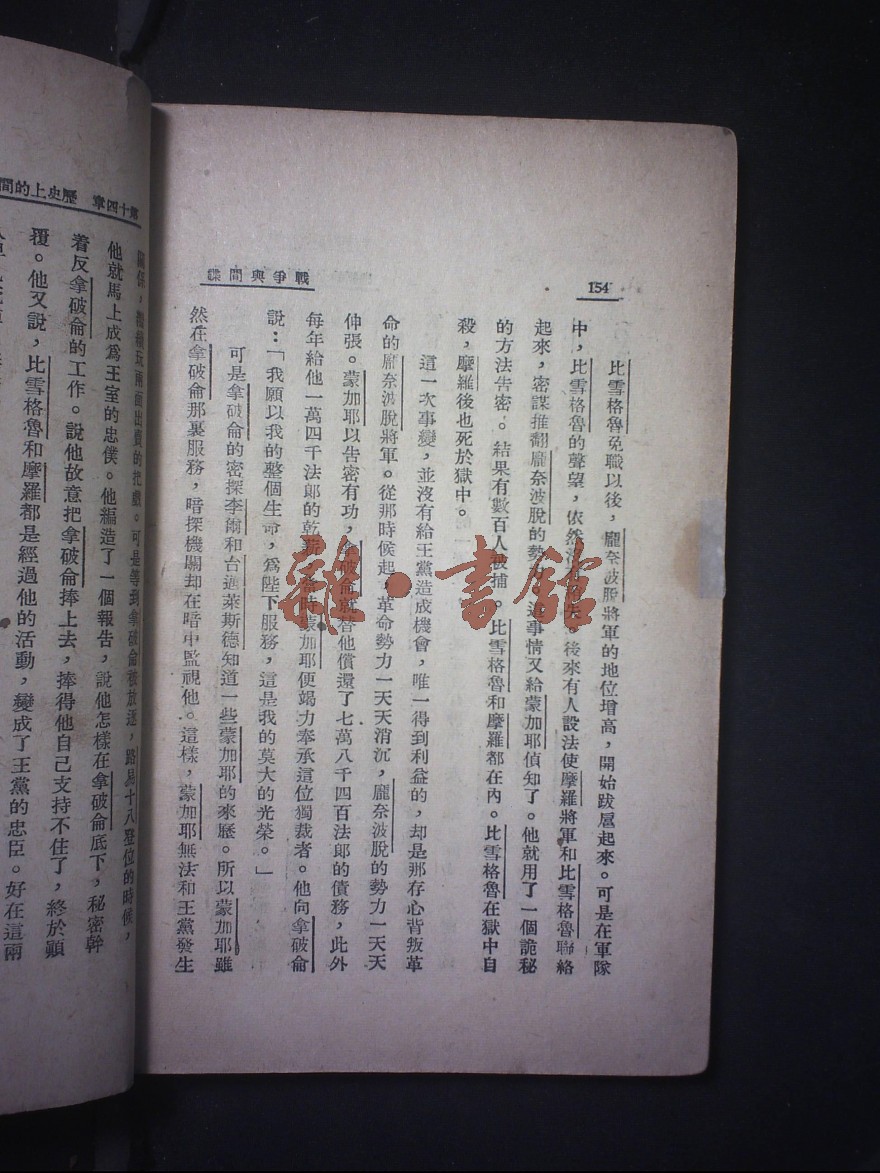 154
戰爭與間諜
比雪格魯免職以後，龐奈波脫將軍的地位增高，開始跋扈起來。可是在軍隊
中，比雪格魯的聲望，依然 後來有人設法使摩羅將軍和比雪格魯聯絡
起來，密謀推翻龐奈波脫的勢力 事情又給蒙加耶偵知了。他就用了一個詭秘
的方法告密。結果有數百人被捕。比雪格魯和摩羅都在內。比雪格魯在獄中自
殺，摩羅後也死於獄中。
這一次事變，並沒有給王黨造成機會，唯一得到利益的，却是那存心背叛革
命的龐奈波脫將軍。從那時候起，革命勢力一天天消沉，龐奈波脫的勢力一天天
伸張。蒙加耶以告密有功，拿破侖就替他償還了七萬八千四百法郎的債務，此外
每年給他一萬四千法郎的乾薪 時蒙加耶便竭力奉承這位獨裁者。他向拿破侖
說：「我願以我的整個生命，爲陛下服務，這是我的莫大的光榮。」
可是拿破侖的密探李爾和台遜萊斯德知道一些蒙加耶的來歷。所以蒙加耶雖
然在拿破侖那裏服務，暗探機關却在暗中監視他。這樣，蒙加耶無法和王黨發生
第十四章 歷史上的間
關係，繼續玩兩面出賣的把戲。可是等到拿破侖被放逐，路易十八登位的時候，
他就馬上成爲王室的忠僕。他編造了一個報告，說他怎樣在拿破侖底下，秘密幹
着反拿破侖的工作。說他故意把拿破侖捧上去，捧得他自己支持不住了，終於顚
覆。他又說，比雪格魯和摩羅都是經過他的活動，變成了王黨的忠臣。好在這兩
雜·書館